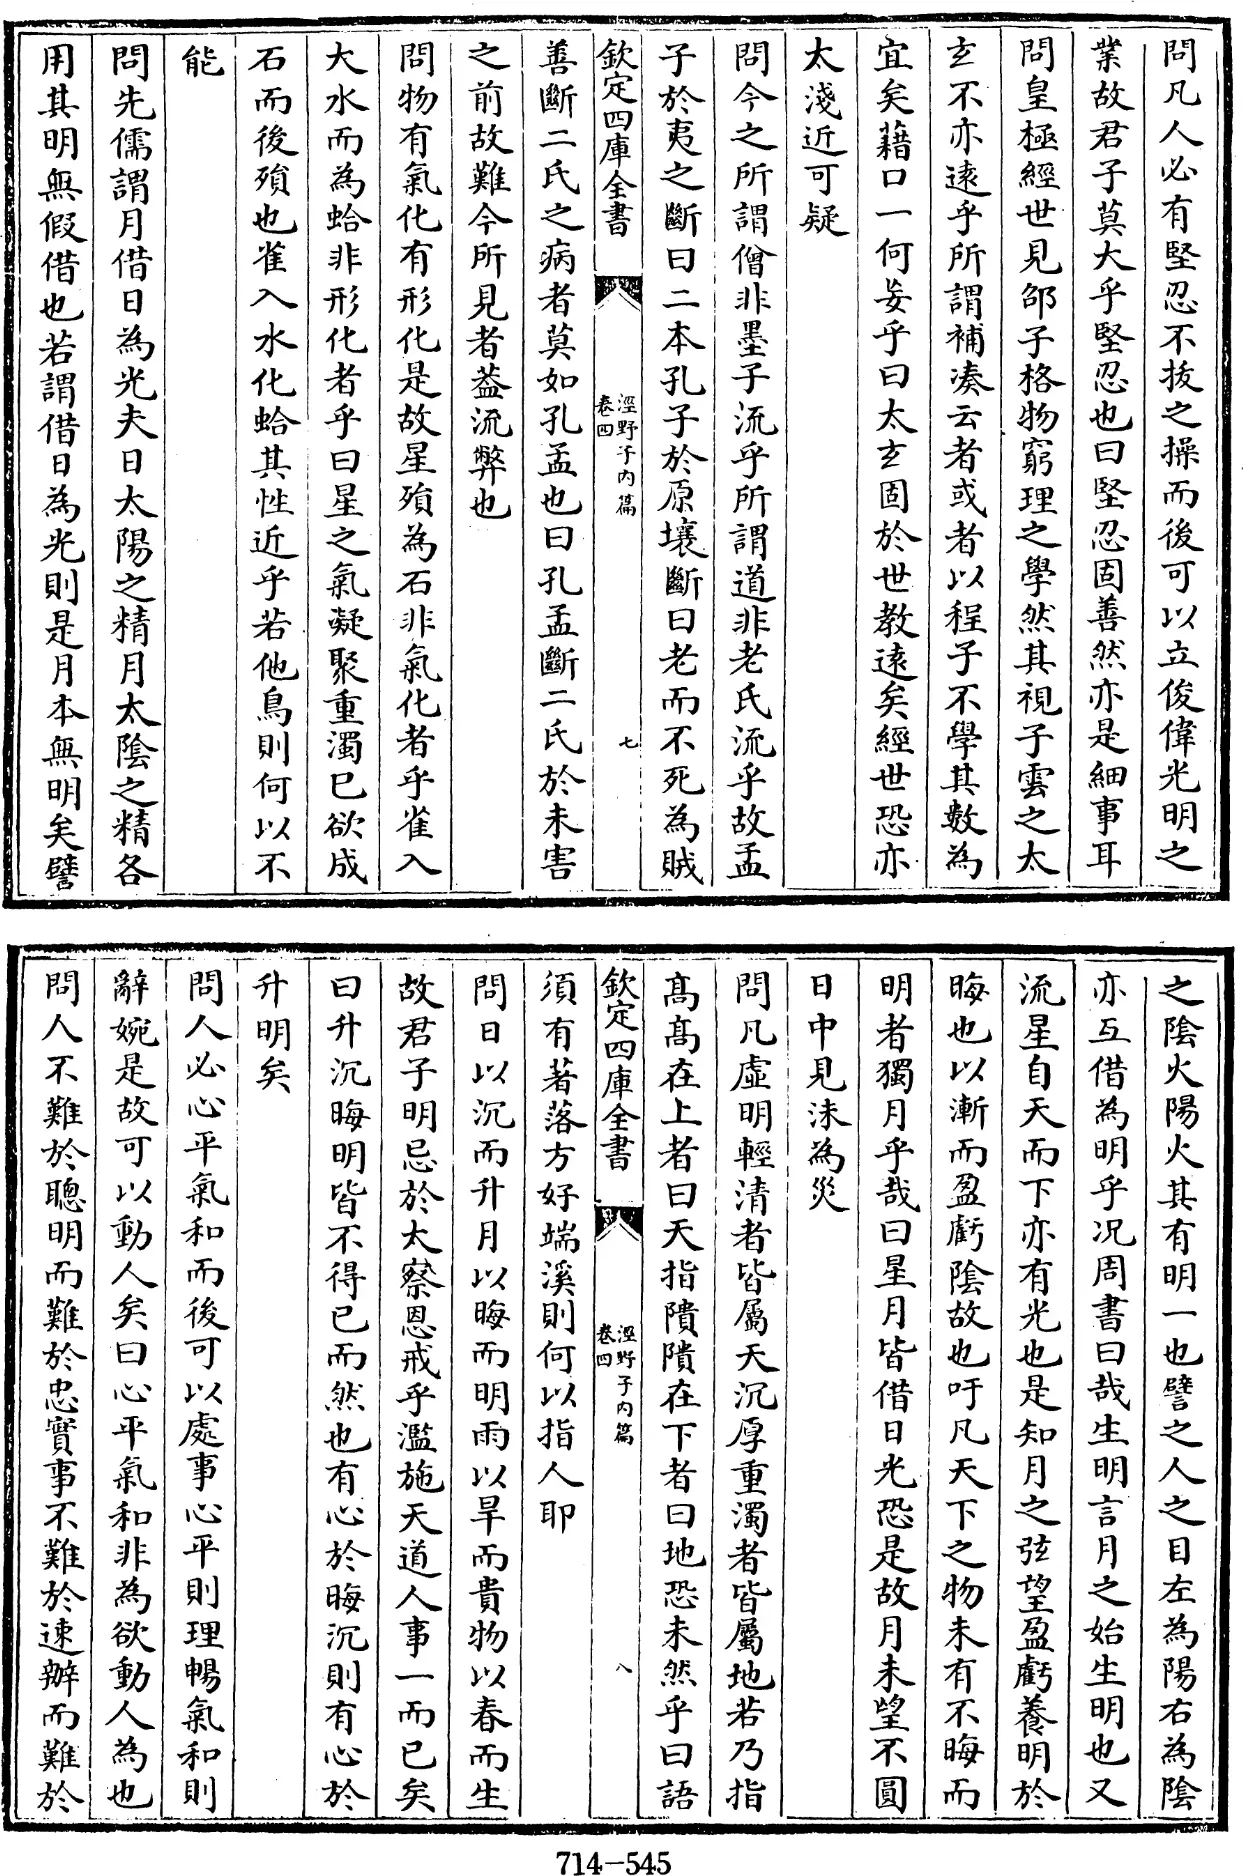 問凡人必有堅忍不拔之操而後可以立俊偉光明之
業故君子莫大乎堅忍也曰堅忍固善然亦是細事耳
問皇極經世見邵子格物窮理之學然其視子雲之太
𤣥不亦遠乎所謂補凑云者或者以程子不學其數為
宜矣藉口一何妄乎曰太𤣥固於世教遠矣經世恐亦
太淺近可疑
問今之所謂僧非墨子流乎所謂道非老氏流乎故孟
子於夷之斷曰二本孔子於原壤斷曰老而不死為賊
欽定四庫全書
涇野子内篇
卷四
七
善斷二氏之病者莫如孔孟也曰孔孟斷二氏於未害
之前故難今所見者葢流弊也
問物有氣化有形化是故星殞為石非氣化者乎雀入
大水而為蛤非形化者乎曰星之氣凝聚重濁已欲成
石而後殞也雀入水化蛤其性近乎若他鳥則何以不
能
問先儒謂月借日為光夫日太陽之精月太陰之精各
用其明無假借也若謂借日為光則是月本無明矣譬
之陰火陽火其有明一也譬之人之目左為陽右為陰
亦互借為明乎况周書曰哉生明言月之始生明也又
流星自天而下亦有光也是知月之弦望盈虧養明於
晦也以漸而盈虧陰故也吁凡天下之物未有不晦而
明者獨月乎哉曰星月皆借日光恐是故月未望不圓
日中見沬為災
問凡虛明輕清者皆屬天沉厚重濁者皆屬地若乃指
髙髙在上者曰天指隤隤在下者曰地恐未然乎曰語
欽定四庫全書
涇野子内篇
卷四
八
須有著落方好端溪則何以指人耶
問日以沉而升月以晦而明雨以旱而貴物以春而生
故君子明忌於太察恩戒乎濫施天道人事一而已矣
曰升沉晦明皆不得已而然也有心於晦沉則有心於
升明矣
問人必心平氣和而後可以處事心平則理暢氣和則
辭婉是故可以動人矣曰心平氣和非為欲動人為也
問人不難於聰明而難於忠實事不難於速辦而難於
714-545